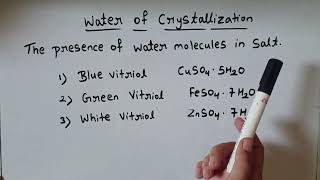 Water of Crystallization
The presence of water molecules in Salt.
1) Blue Vitrial CuSO4·5H2O
2) Green Vitrial FeSO4·7H2O
3) White Vitrial ZnSO4·7H